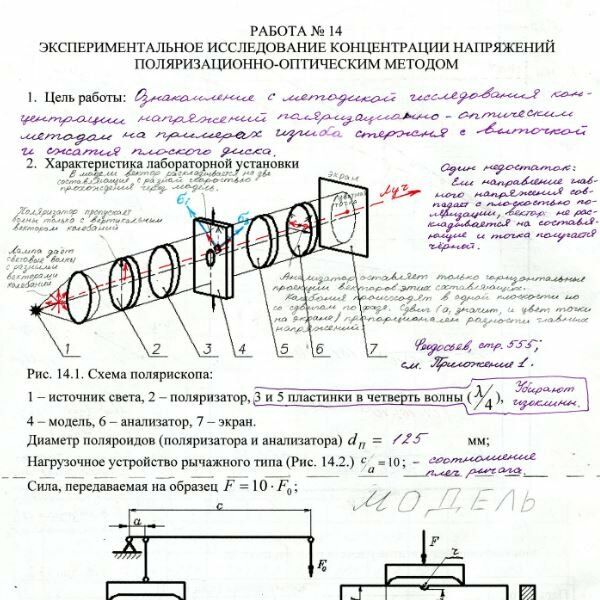 РАБОТА № 14
ЭКСПЕРИМЕНТАЛЬНОЕ ИССЛЕДОВАНИЕ КОНЦЕНТРАЦИИ НАПРЯЖЕНИЙ
ПОЛЯРИЗАЦИОННО-ОПТИЧЕСКИМ МЕТОДОМ
1. Цель работы: Ознакомление с методикой исследования кон-
центрации напряжений поляризационно-оптическим
методом на примерах изгиба стержня с выточкой
и сжатия плоского диска.
2. Характеристика лабораторной установки
В модели вектор раскладывается на две
составляющие с разной скоростью
прохождения через модель.
Поляризатор пропускает
волны только с вертикальным
вектором колебаний
Лампа даёт
световые волны
с разными
векторами
колебаний
б1
Экран
Цветная точка
Луч
Один недостаток:
Если направление глав-
ного напряжения сов-
падает с плоскостью по-
ляризации, вектор не рас-
кладывается на составля-
ющие и точка получается
чёрной.
Анализатор оставляет только горизонтальные
проекции векторов этих составляющих.
Колебания происходят в одной плоскости но
со сдвигом по фазе. Сдвиг (а, значит, и цвет точки
на экране) пропорционален разности главных
напряжений.
1 2 3 4 5 6 7
Феодосьев, стр. 555;
см. Приложение 1.
Рис. 14.1. Схема полярископа:
1 – источник света, 2 – поляризатор, 3 и 5 пластинки в четверть волны (λ/4), Убирают изоклины.
4 – модель, 6 – анализатор, 7 – экран.
Диаметр поляроидов (поляризатора и анализатора) dп = 125 мм;
Нагрузочное устройство рычажного типа (Рис. 14.2.) c/a = 10; – соотношение плеч рычага.
Сила, передаваемая на образец F = 10 · F0;
МОДЕЛЬ
c
a
F0
F
r